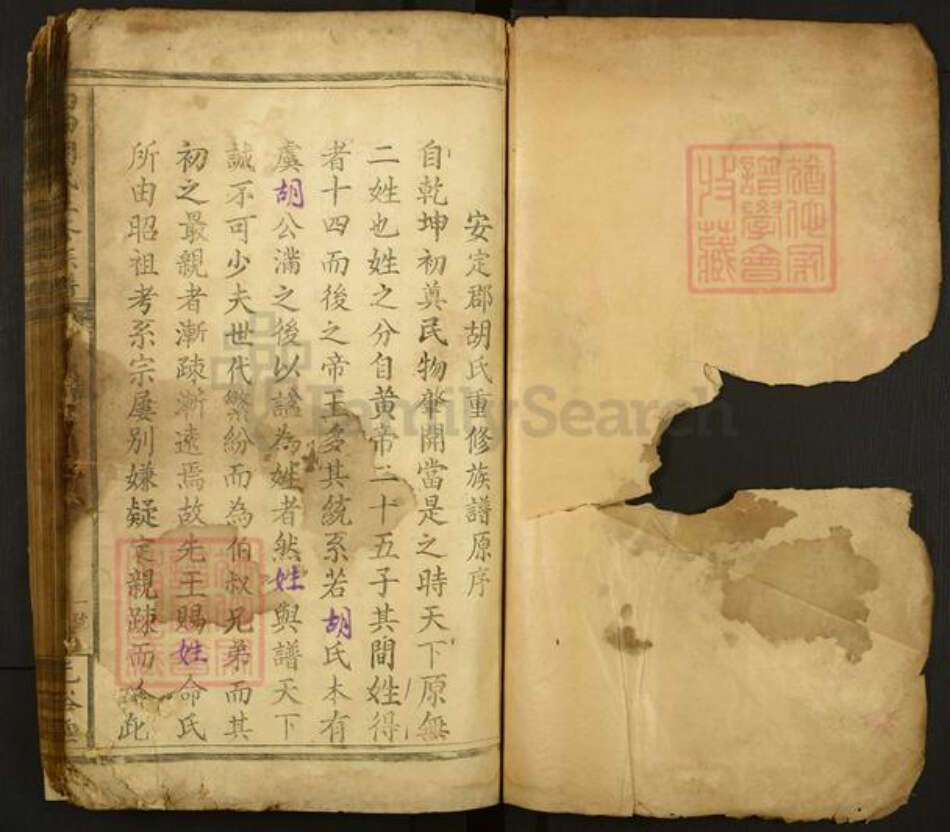 安定郡胡氏重修族譜原序
自乾坤初奠民物肇開當是之時天下原無
二姓也姓之分自黃帝二十五子其間姓得
者十四而後之帝王多其統系若胡氏本有
虞胡公滿之後以謚為姓者然姓與譜天下
誠不可少夫世代繁紛而為伯叔兄弟而其
初之最親者漸疎漸遠焉故先王賜姓命氏
所由昭祖考系宗屢別嫌疑定親疎而 此
譜學會
收藏
FamilySearch